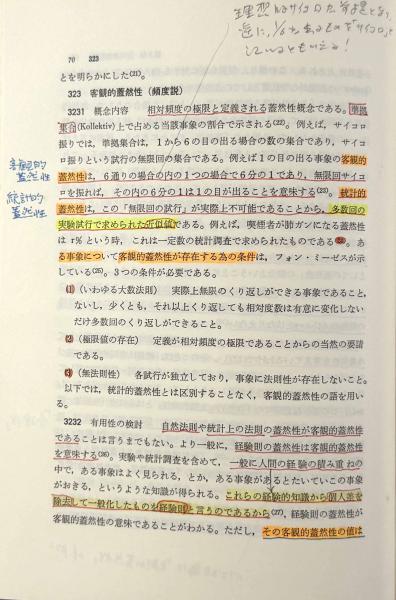 理想的なサイコロが前提となり、
逆に、1/6であるものを「サイコロ」と
しているともいえる！
70　323
とを明らかにした(21)。
323　客観的蓋然性（頻度説）
3231　概念内容　相対頻度の極限と定義される蓋然性概念である。準拠
集合(Kollektiv)上で占める当該事象の割合で示される(22)。例えば，サイコロ
振りでは，準拠集合は，1から6の目の出る場合の数の集合であり，サイコ
ロ振りという試行の無限回の集合である。例えば1の目の出る事象の客観的
蓋然性は，6通りの場合の内の1つの場合で6分の1であり，無限回サイコ
ロを振れば，その内の6分の1は1の目が出ることを意味する(23)。統計的
蓋然性は，この「無限回の試行」が実際上不可能であることから，多数回の
実験試行で求められた近似値である。例えば，喫煙者が肺ガンになる蓋然性
は r％という時，これは一定数の統計調査で求められたものである(24)。あ
る事象について客観的蓋然性が存在する為の条件は，フォン・ミーゼスが示
している(25)。3つの条件が必要である。
(1)　（いわゆる大数法則）　実際上無限のくり返しができる事象であること，
ないし，少くとも，それ以上くり返しても相対度数は有意に変化しない
だけ多数回のくり返しができること。
(2)　（極限値の存在）　定義が相対頻度の極限であることからの当然の要請
である。
(3)　（無法則性）　各試行が独立しており，事象に法則性が存在しないこと。
以下では，統計的蓋然性とは区別することなく，客観的蓋然性の語を用い
る。
3232　有用性の検討　自然法則や統計上の法則の蓋然性が客観的蓋然性
であることは言うまでもない。より一般に，経験則の蓋然性は客観的蓋然性
を意味する(26)。実験や統計調査を含めて，一般に人間の経験の積み重ねの
中で，ある事象はよく見られる，とか，ある事象があるとたいていこの事象
がおきる，というような知識が得られる。これらの経験的知識から個人差を
除去して一般化したものを経験則と言うのであるから(27)，経験則の蓋然性が
客観的蓋然性の意味であることがわかる。ただし，その客観的蓋然性の値は
客観的
蓋然性
統計的
蓋然性